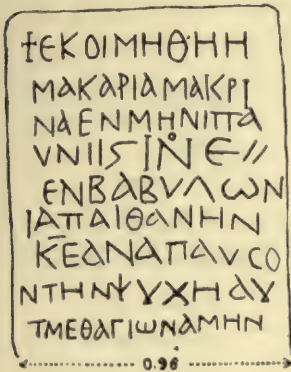 ⲾΕΚΟΙΜΗΘΗΗ
ΜΑΚΑΡΙΑΜΑΚΡΙ
ΝΑΕΝΜΗΝΙΠΑ
ΥΝΙΙϚΙΝΕ//
ΕΝΒΑΒΥΛΩΝ
ΙΑΠΑΙΘΑΝΗΝ
Κ̅ΕΑΝΑΠΑΥϹΟ
ΝΤΗΝΨΥΧΗΑΥ
ΤΜΕΘΑΓΙΩΝΑΜΗΝ
0.96